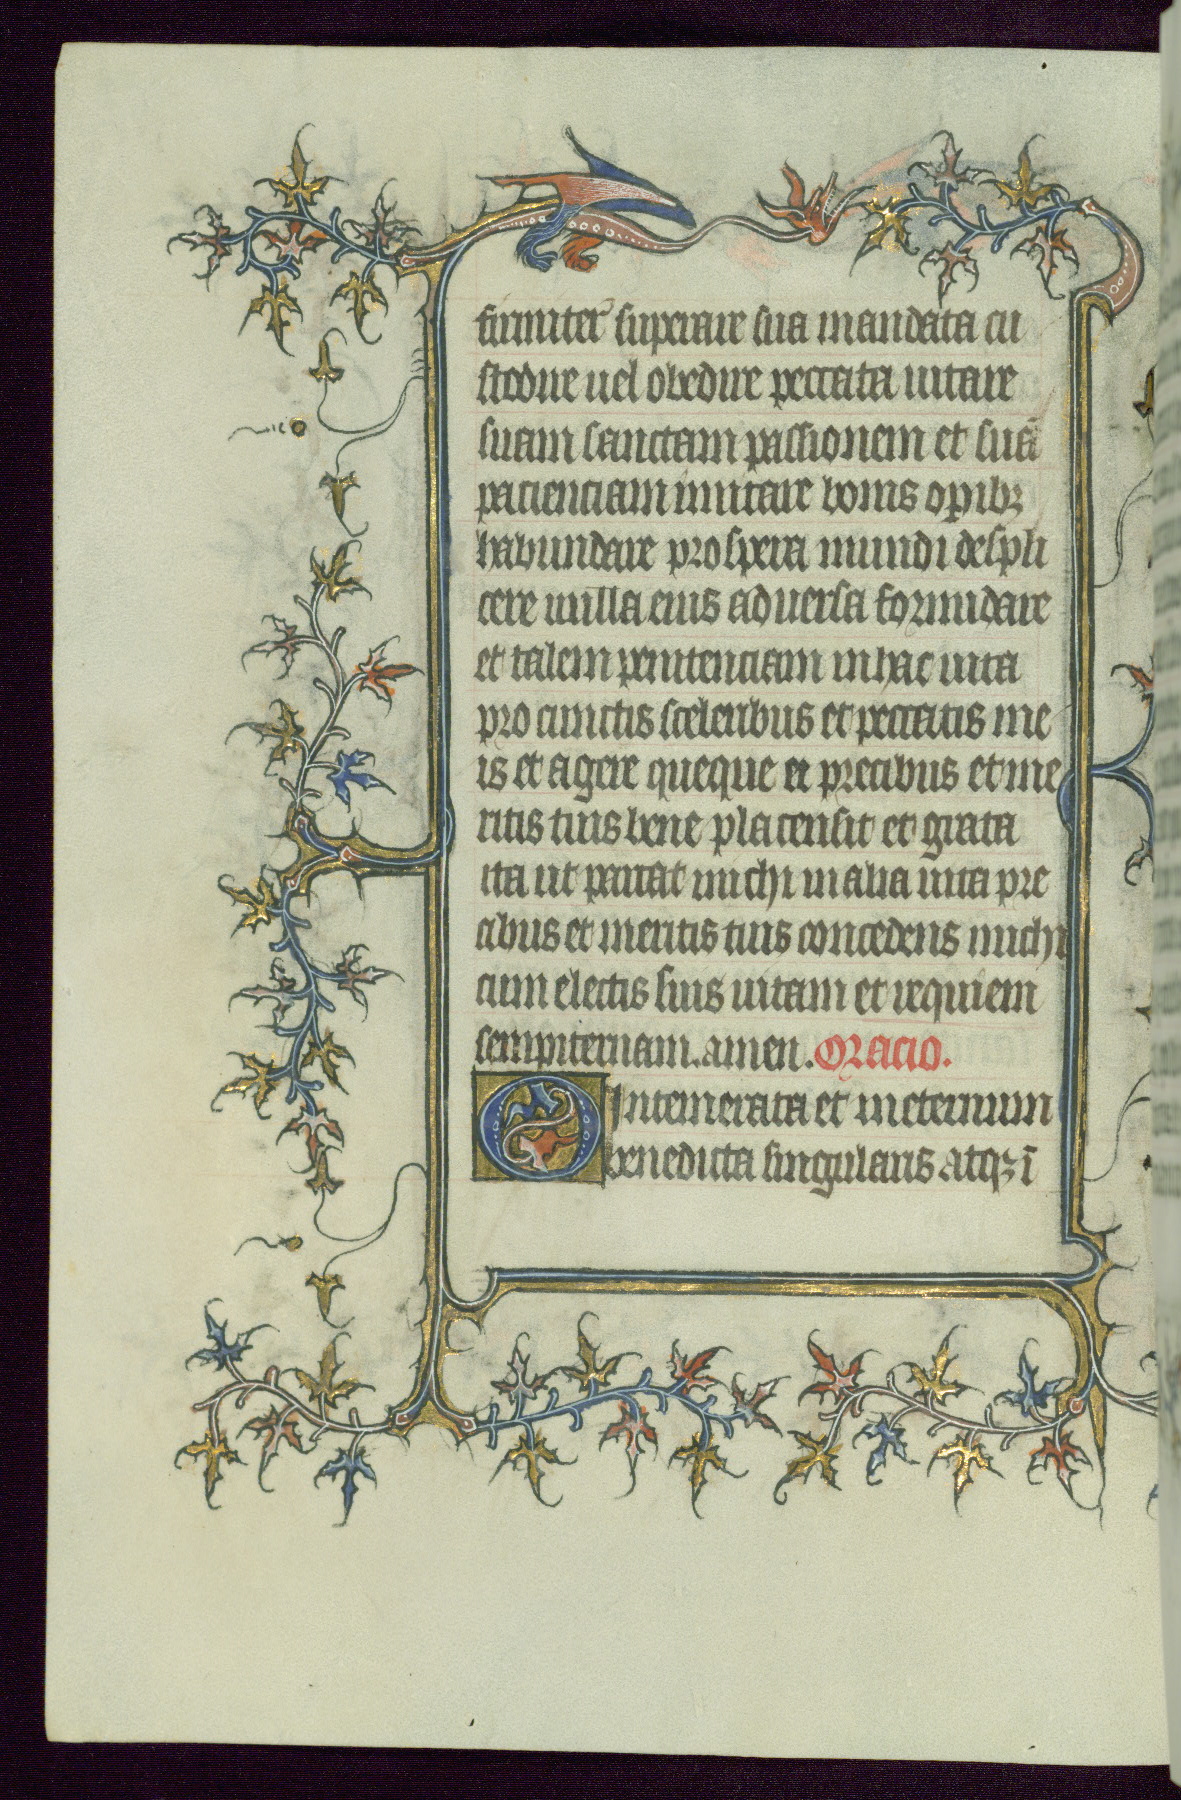 firmiter superare sua mandata cu
stodire uel obedire peccata uitare
suam sanctam passionem et suā
pacienciam imitare bonis opibꝫ
habundare prospera mundi despli
cere nulla eius aduersa formidare
et talem penitenciam in hac uita
pro cunctis sceleribus et peccatis me
is et agere queque et precibus et me
ritis tuis bene placens sit et grata
ita ut pariat michi in alia uita pre
cibus et meritis tuis concedens michi
cum electis suis uitam et requiem
sempiternam. amen. Oracio.
O Intemerata et in eternum
benedicta singularis atqꝫ ī